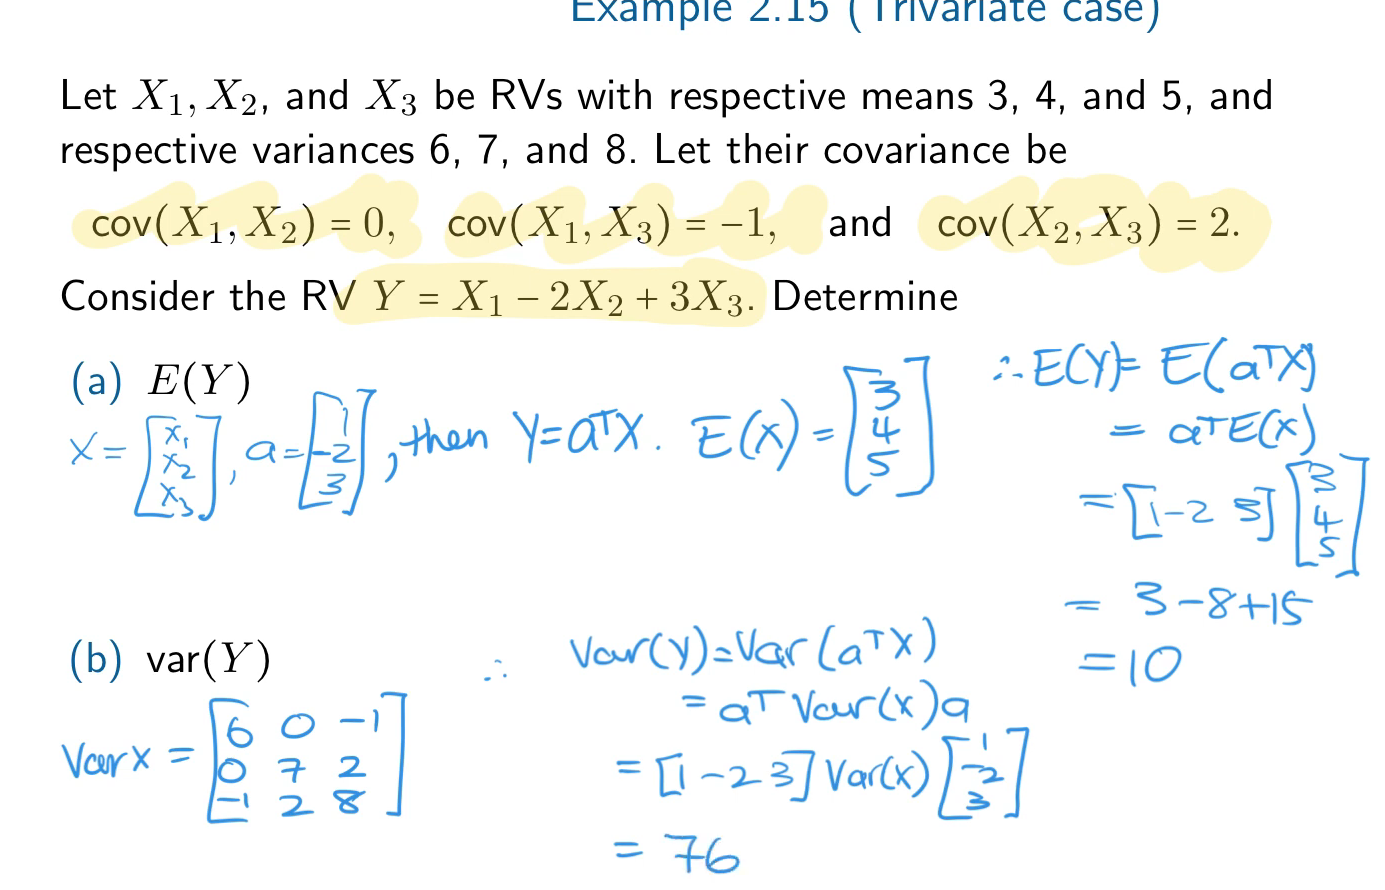 Example 2.15 (Trivariate case)
Let X₁, X₂, and X₃ be RVs with respective means 3, 4, and 5, and
respective variances 6, 7, and 8. Let their covariance be
cov(X₁, X₂) = 0, cov(X₁, X₃) = −1, and cov(X₂, X₃) = 2.
Consider the RV Y = X₁ − 2X₂ + 3X₃. Determine
(a) E(Y)
X = [x₁ x₂ x₃], a = [1 -2 3], then Y=aᵀX. E(X) = [3 4 5]
∴ E(Y) = E(aᵀX)
= aᵀE(X)
= [1 -2 3] [3 4 5]
= 3-8+15
=10
(b) var(Y)
Var X = [6 0 -1
0 7 2
-1 2 8]
∴ Var(Y)=Var(aᵀX)
= aᵀ Var(X)a
= [1 -2 3] Var(X) [1 -2 3]
= 76